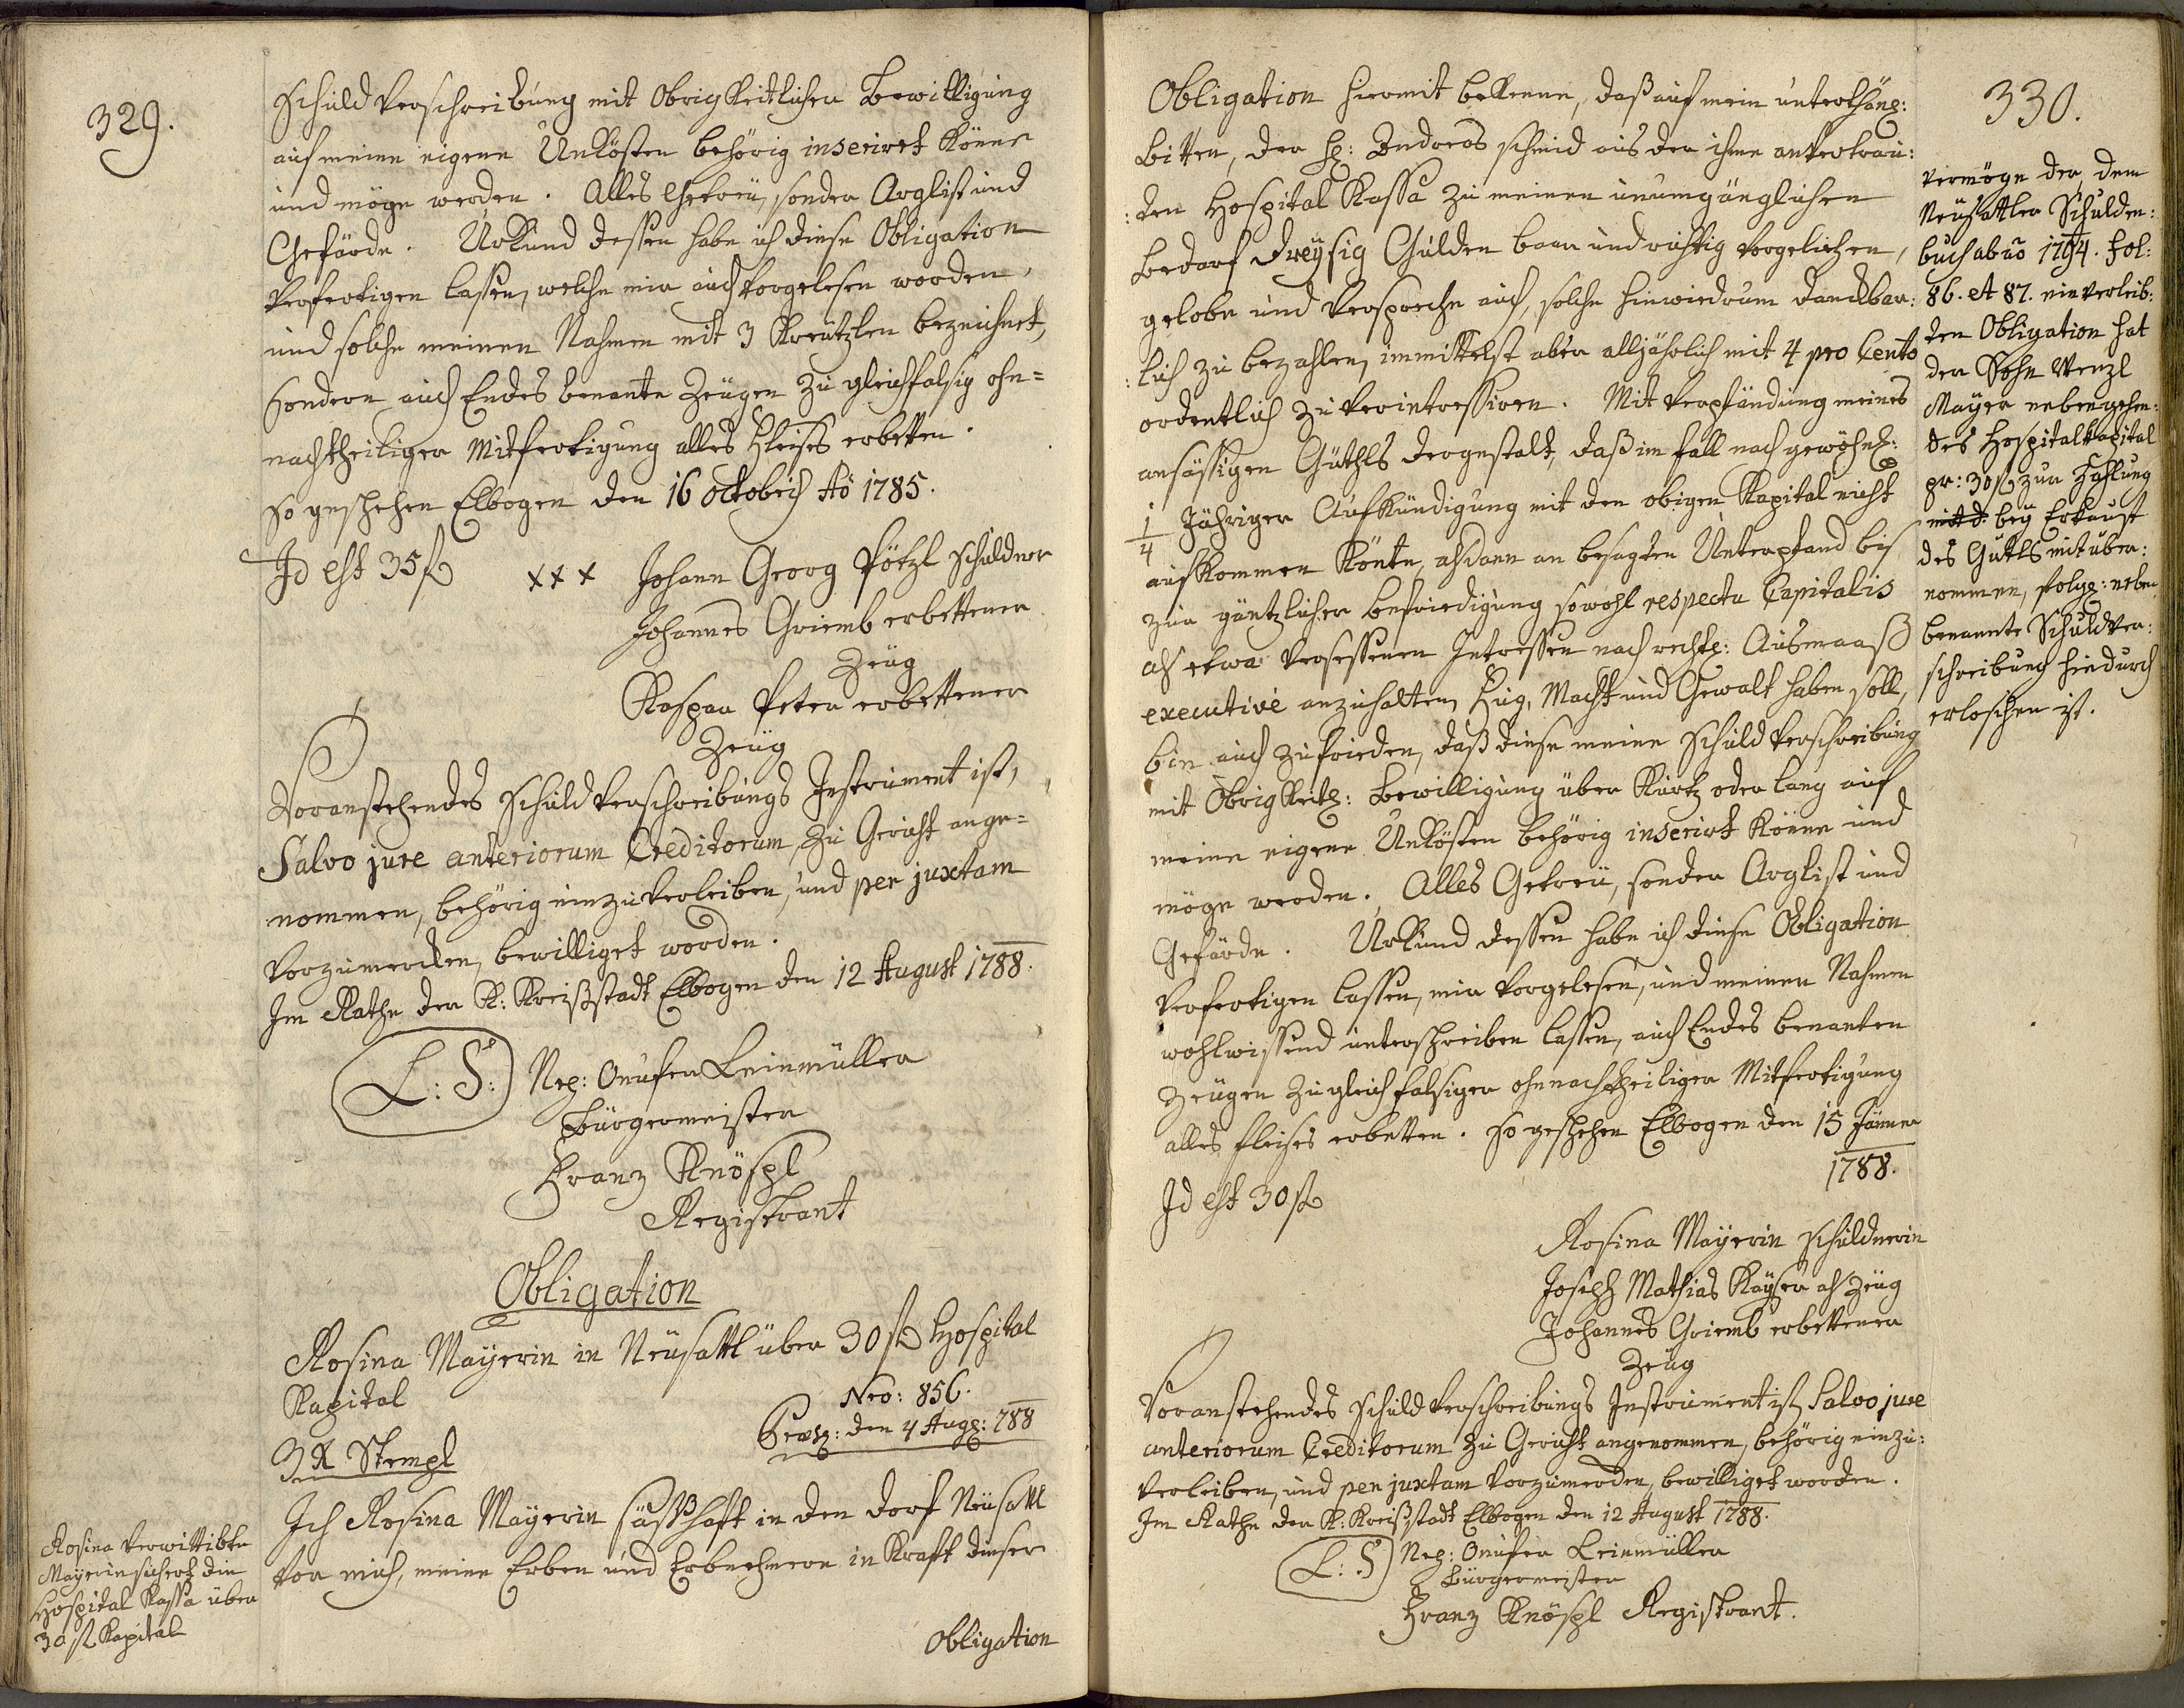 329.
Schuld Verschreibung mit Obrigkeitlicher Bewilligung
auf meine eigene Unkösten behörig inserirt könne
und möge werden. Alles Getreü, sonder Arglist und
Gefärde. Urkund dessen habe ich diese Obligation
Verfertigen lassen, welche mir auch Vorgelesen worden,
und solche meinen Nahmen mit 3 Kreützlen bezeichnet,
sondern auch Endes benante Zeügen zu gleichfalsig ohn=
nachtheiliger Mitfertigung alles Fleises erbetten.
So geschehen Elbogen den 16 octobris Aõ 1785.
Id est 35 f
xxx Johann Georg Pötzl Schuldner
Johannes Griemb erbettener
Zeüg
Kaspar Peter erbettener
Zeüg
Voranstehendes Schuld Verschreibungs Instrument ist,
Salvo jure anteriorum Creditorum, zu Gericht ange=
nommen, behörig einzuverleiben, und per juxtam
Vorzumerken, bewilliget worden.
Im Rathe der K: Kreißstadt Elbogen den 12 August 1788.
L: S: Nep: Onufer Leinmüller
Bürgermeister
Franz Knöspl
Registrant
Obligation
Rosina Mayerin in Neüsattl über 30 f Hospital
Kapital
Nro: 856.
3 X Stempl
Præs: den 4 Aug: 788
Ich Rosina Mayerin säßhaft in den Dorf Neüsattl
Vor mich, meine Erben und Erbnehmern in Kraft dieser
Obligation
Rosina Verwittibte
Mayerin sichert die
Hospital Kassa über
30 f Kapital
330.
Obligation hiermit bekenne, daß auf mein unterthänig:
Bitten, der H: Andreas Schmid aus der ihme anvertrau:
:ten Hospital Kassa zu meinen unumgänglichen
Bedarf dreÿsig Gulden baar und richtig Vorgeliehen,
gelobe und Verspreche auch, solche hinwiedrum danckbar:
:lich zu bezahlen, immittelst aber alljährlich mit 4 pro Cento
ordentlich zu Verintressiren. Mit Verpfändung meines
ansässigen Güthls dergestalt, daß im fall nach gewöhnl:
1/4 Jähriger Aufkündigung mit den obigen Kapital nicht
aufkommen könte, alsdann an besagten Unterpfand bis
zur gäntzlicher Befriedigung sowohl respectu Capitalis
als etwa Versessenen Intressen nach rechtl: Ausmaaß
executivè anzuhalten, Fug, Macht und Gewalt haben soll,
bin auch zufrieden, daß diese meine Schuld Verschreibung
mit Obrigkeitl: Bewilligung über kurtz oder lang auf
meine eigene Unkösten behörig inserirt könne und
möge werden. Alles Getreü, sonder Arglist und
Gefärde. Urkund dessen habe ich diese Obligation
Verfertigen lassen, mir Vorgelesen, und meinen Nahmen
wohlwissend unterschreiben lassen, auch Endes benanten
Zeügen zu gleichfalsiger ohnnachtheiliger Mitfertigung
alles Fleises erbetten. So geschehen Elbogen den 15 Jänner
1788.
Id est 30 f
Rosina Mayerin Schuldnerin
Joseph Mathias Kayser als Zeüg
Johannes Griemb erbettener
Zeüg
Voranstehendes Schuld Verschreibungs Instrument ist, Salvo jure
anteriorum Creditorum zu Gericht angenommen, behörig einzu:
Verleiben, und per juxtam Vorzumerken, bewilliget worden.
Im Rathe der K: Kreißstadt Elbogen den 12 August 1788.
L: S Nep: Onufer Leinmüller
Bürgermeister
Franz Knöspl Registrant.
Vermöge der, dem
Neusattler Schulden:
buch ab aõ 1794. Fol:
86. et 87. einverleib:
ten Obligation hat
der Sohn Wenzl
Mayer nebengehen:
des Hospitalkapital
pr: 30 f zur Zahlung
mit d. bey Erkauf
des Gutls mit über:
nommen, folgl: neben
benannte Schuldver:
schreibung hiedurch
erloschen ist.